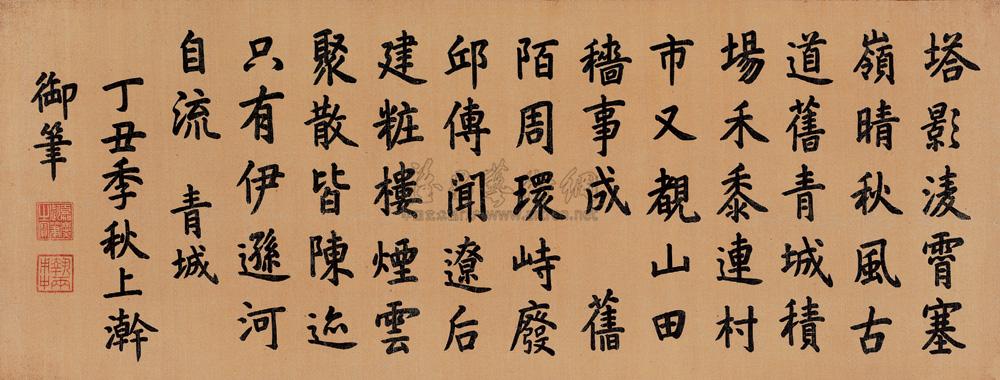 塔影淩霄塞
嶺晴秋風古
道舊青城積
場禾黍連村
市又覩山田
穡事成 舊
陌周環峙廢
邱傳聞遼后
建粧樓煙雲
聚散皆陳迹
只有伊遜河
自流 青城
丁丑季秋上澣
御筆